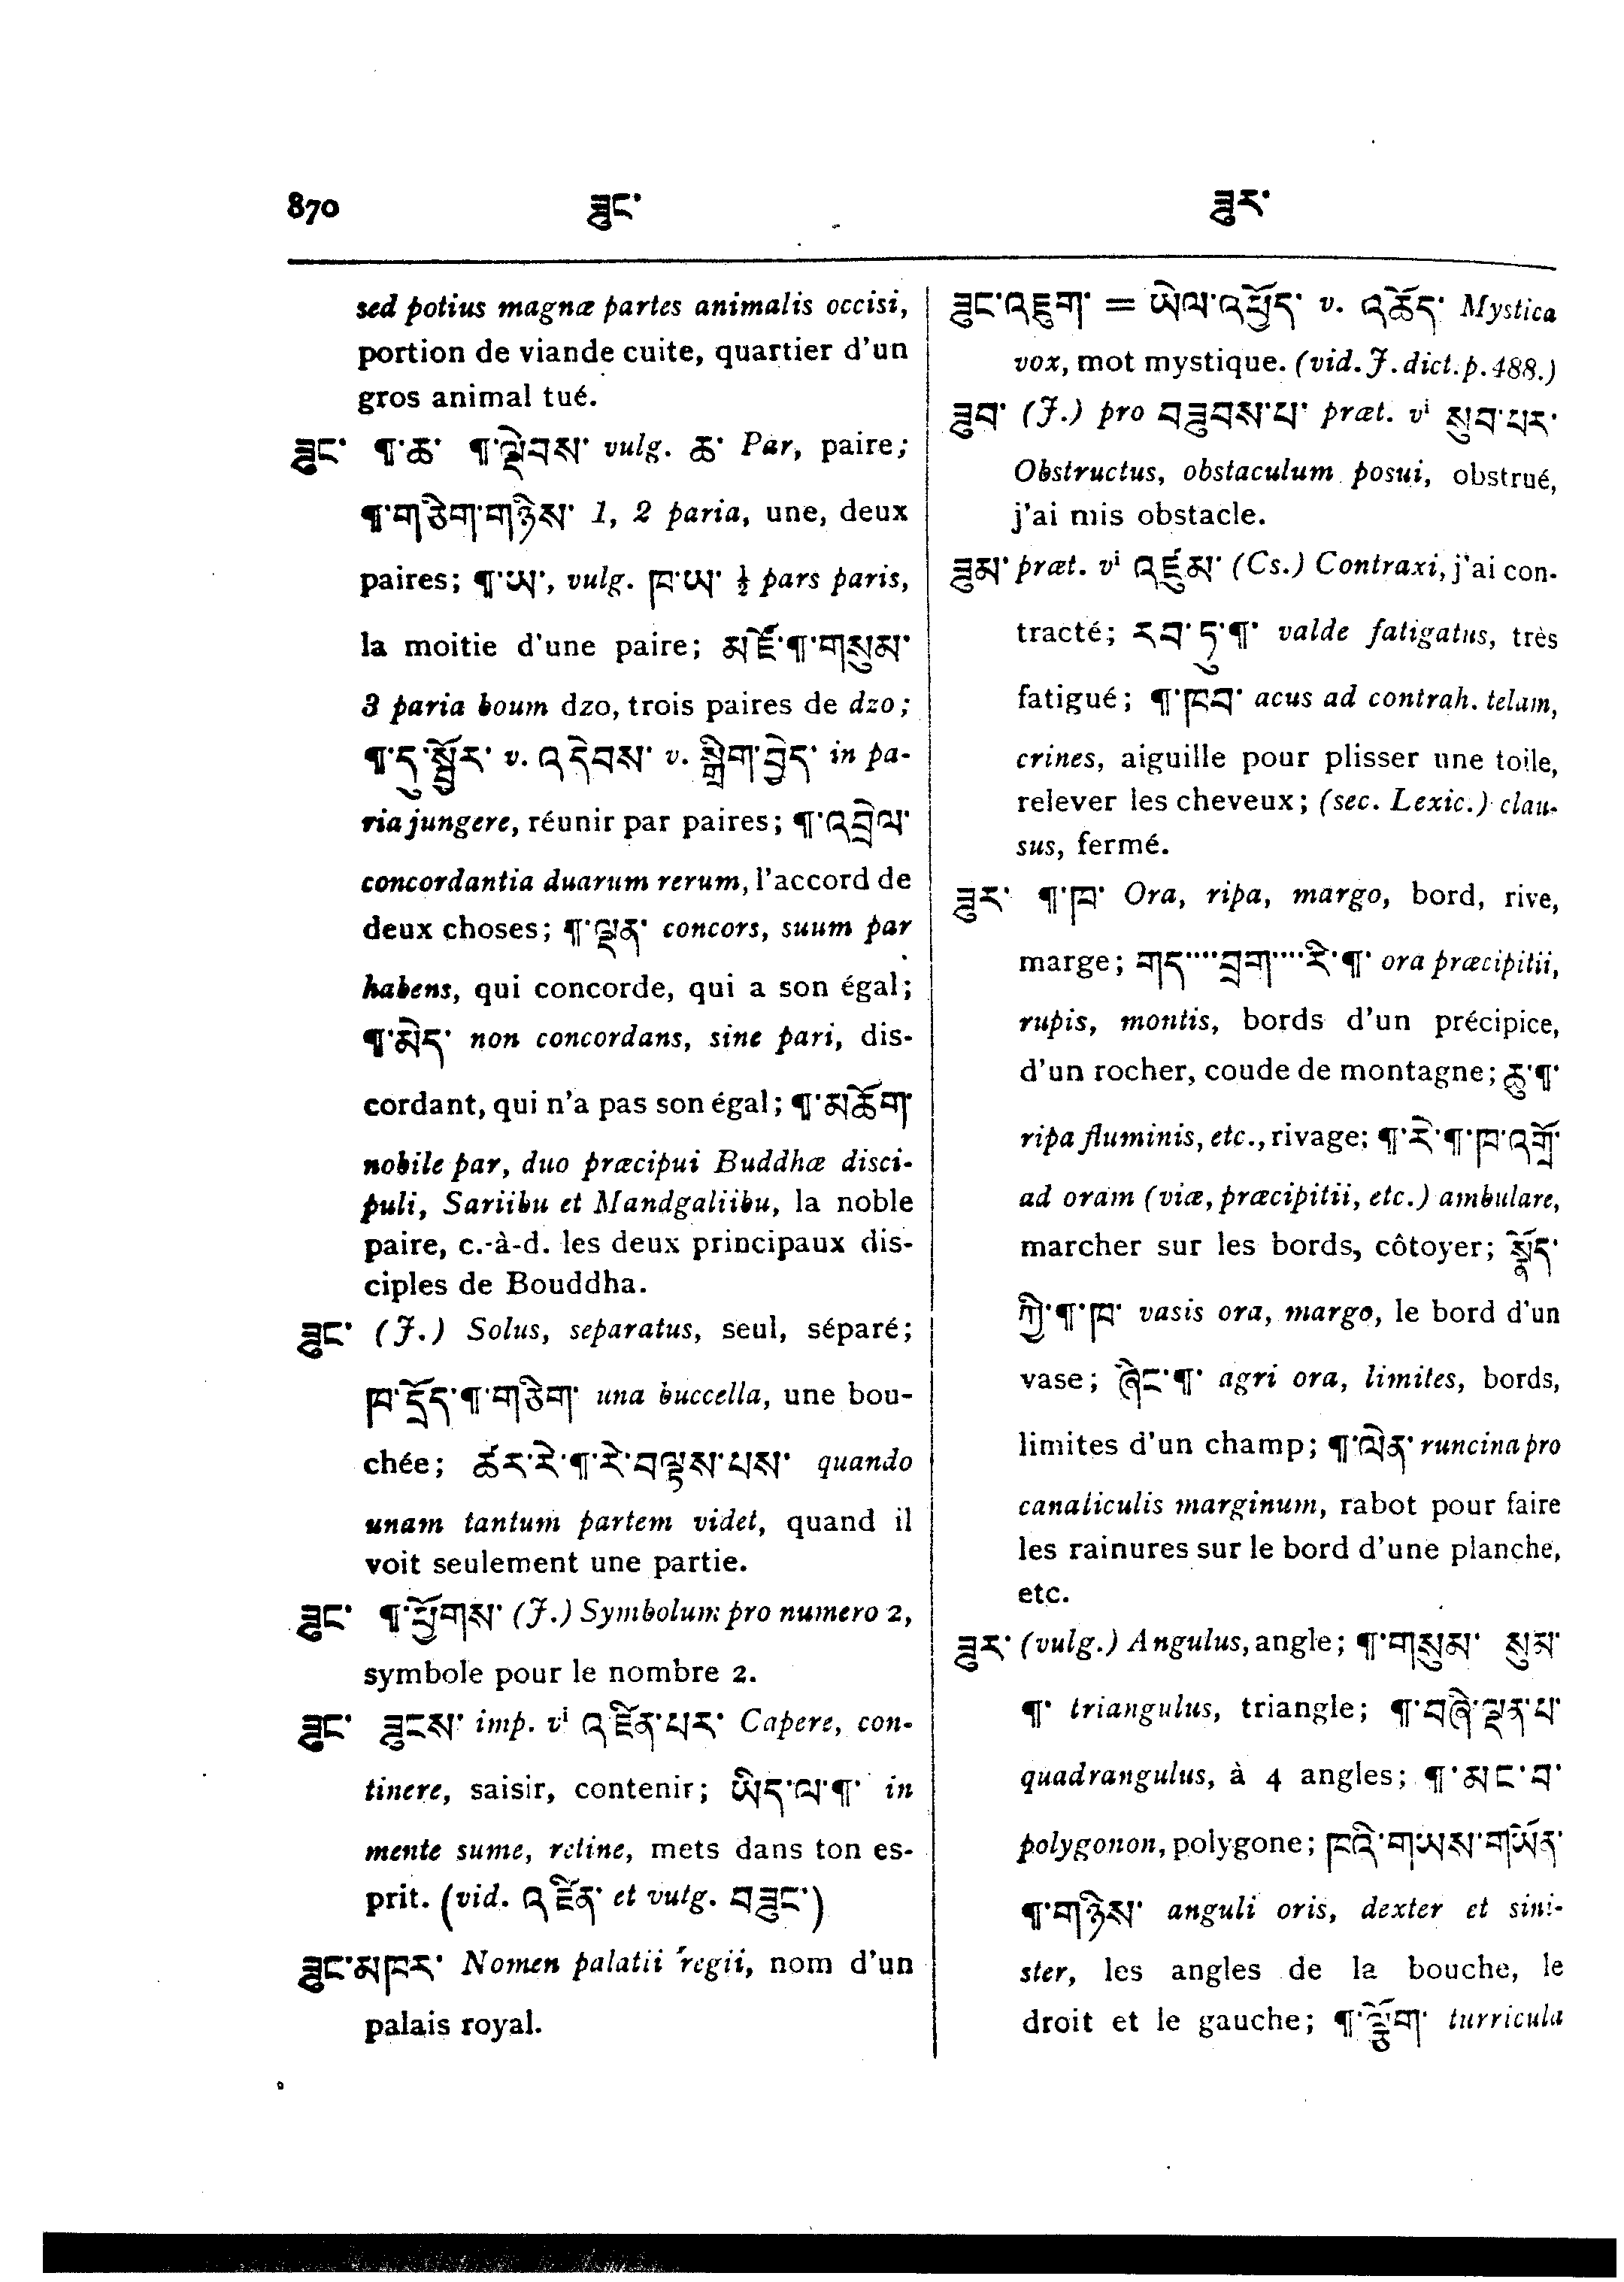 870 ཟུང་ ཟུར་
sed potius magnæ partes animalis occisi,
portion de viande cuite, quartier d'un
gros animal tué.
ཟུང་ ¶་ཆ་ ¶་ལྡེབས་ vulg. ཆ་ Par, paire;
¶་གཅིག་གཉིས་ 1, 2 paria, une, deux
paires; ¶་ཡ་, vulg. ཁ་ཡ་ ½ pars paris,
la moitie d'une paire; མཛོ་¶་གསུམ་
3 paria boum dzo, trois paires de dzo;
¶་དུ་སྦྱོར་ v. འདེབས་ v. སྒྲིག་བྱེད་ in pa-
ria jungere, réunir par paires; ¶་འབྲེལ་
concordantia duarum rerum, l'accord de
deux choses; ¶་ལྡན་ concors, suum par
habens, qui concorde, qui a son égal;
¶་མེད་ non concordans, sine pari, dis-
cordant, qui n'a pas son égal; ¶་མཆོག་
nobile par, duo præcipui Buddhæ disci-
puli, Sariibu et Mandgaliibu, la noble
paire, c.-à-d. les deux principaux dis-
ciples de Bouddha.
ཟུང་ (J.) Solus, separatus, seul, séparé;
ཁ་དྲོད་¶་གཅིག་ una buccella, une bou-
chée; ཚར་རེ་¶་རེ་བལྟས་པས་ quando
unam tantum partem videt, quand il
voit seulement une partie.
ཟུང་ ¶་ཕྱོགས་ (J.) Symbolum pro numero 2,
symbole pour le nombre 2.
ཟུང་ ཟུངས་ imp. vi འཛིན་པར་ Capere, con-
tinere, saisir, contenir; ཡིད་ལ་¶་ in
mente sume, retine, mets dans ton es-
prit. (vid. འཛིན་ et vulg. བཟུང་)
ཟུང་མཁར་ Nomen palatii regii, nom d'un
palais royal.
ཟུང་འཇུག་ = ཡེལ་འཕྱོད་ v. འཆོད་ Mystica
vox, mot mystique. (vid. J. dict. p. 488.)
ཟུབ་ (J.) pro བཟུབས་པ་ præt. vi སུབ་པར་
Obstructus, obstaculum posui, obstrué,
j'ai mis obstacle.
ཟུམ་ præt. vi འཛུམ་ (Cs.) Contraxi, j'ai con-
tracté; རབ་ཏུ་¶་ valde fatigatus, très
fatigué; ¶་ཁབ་ acus ad contrah. telam,
crines, aiguille pour plisser une toile,
relever les cheveux; (sec. Lexic.) clau-
sus, fermé.
ཟུར་ ¶་ཁ་ Ora, ripa, margo, bord, rive,
marge; གད་་་་བྲག་་་་རི་¶་ ora præcipitii,
rupis, montis, bords d'un précipice,
d'un rocher, coude de montagne; ཆུ་¶་
ripa fluminis, etc., rivage; ¶་རེ་¶་ཁ་འགྲོ་
ad oram (viæ, præcipitii, etc.) ambulare,
marcher sur les bords, côtoyer; སྣོད་
ཀྱི་¶་ཁ་ vasis ora, margo, le bord d'un
vase; ཞིང་¶་ agri ora, limites, bords,
limites d'un champ; ¶་ལེན་ runcina pro
canaliculis marginum, rabot pour faire
les rainures sur le bord d'une planche,
etc.
ཟུར་ (vulg.) Angulus, angle; ¶་གསུམ་ སུམ་
¶་ triangulus, triangle; ¶་བཞི་ལྡན་པ་
quadrangulus, à 4 angles; ¶་མང་བ་
polygonon, polygone; ཁའི་གཡས་གཡོན་
¶་གཉིས་ anguli oris, dexter et sini-
ster, les angles de la bouche, le
droit et le gauche; ¶་ turricula